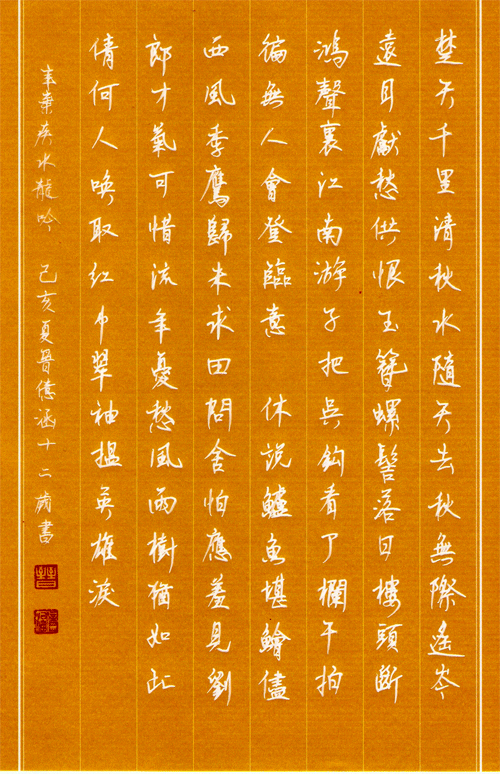 楚天千里清秋水隨天去秋無際遙岑
遠目獻愁供恨玉簪螺髻落日樓頭斷
鴻聲裏江南游子把吳鉤看了欄干拍
徧無人會登臨意 休說鱸魚堪鱠儘
西風季鷹歸未求田問舍怕應羞見劉
郎才氣可惜流年憂愁風雨樹猶如此
倩何人喚取紅巾翠袖揾英雄淚
辛棄疾水龍吟 己亥夏億涵十二歲書